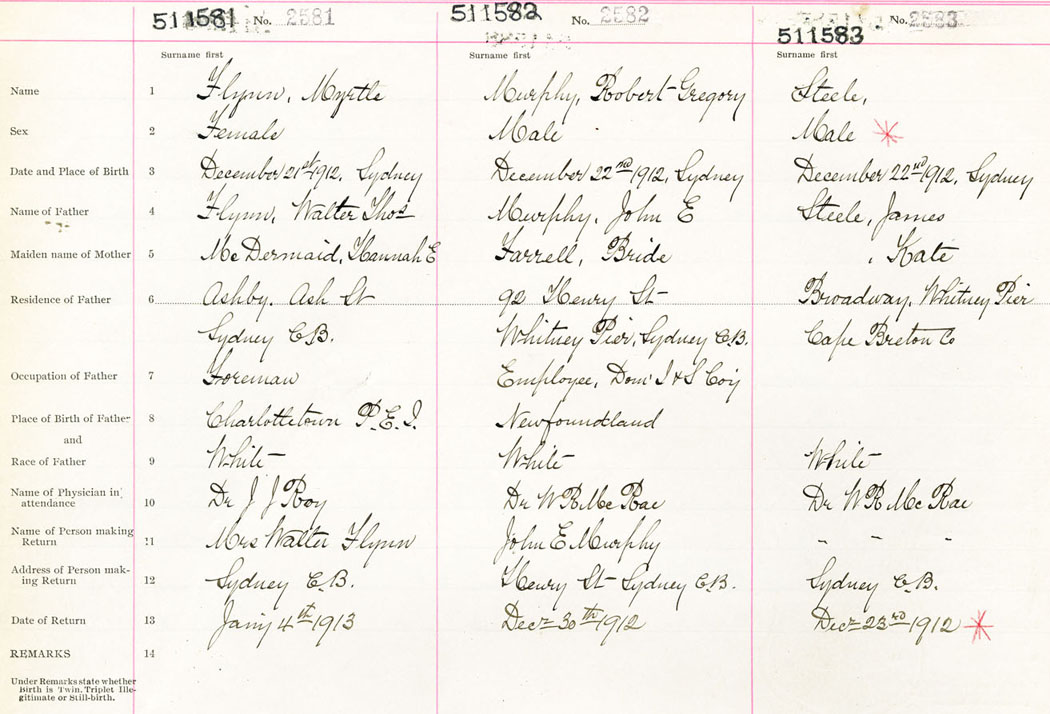 511581 No. 2581 511582 No. 2582 511583 No. 2583
Surname first Surname first Surname first
Name 1 Flynn, Myrtle Murphy, Robert Gregory Steele,
Sex 2 Female Male Male
Date and Place of Birth 3 December 21st 1912, Sydney December 22nd 1912, Sydney December 22nd 1912, Sydney
Name of Father 4 Flynn, Walter Thos Murphy, John E Steele, James
Maiden name of Mother 5 McDermaid, Hannah E Farrell, Bride , Kate
Residence of Father 6 Ashby. Ash St 92 Henry St Broadway, Whitney Pier
Sydney C.B. Whitney Pier, Sydney C.B. Cape Breton Co
Occupation of Father 7 Foreman Employee, Dom I & S Coy
Place of Birth of Father 8 Charlottetown P.E.I. Newfoundland
and
Race of Father 9 White White White
Name of Physician in attendance 10 Dr J J Roy Dr W R McRae Dr W R McRae
Name of Person making Return 11 Mrs Walter Flynn John E Murphy " " "
Address of Person mak-
ing Return 12 Sydney C.B. Henry St Sydney C.B. Sydney C.B.
Date of Return 13 Jany 4th 1913 Decr 30th 1912 Decr 23rd 1912
REMARKS 14
Under Remarks state whether
Birth is Twin, Triplet Ille-
gitimate or Still-birth.